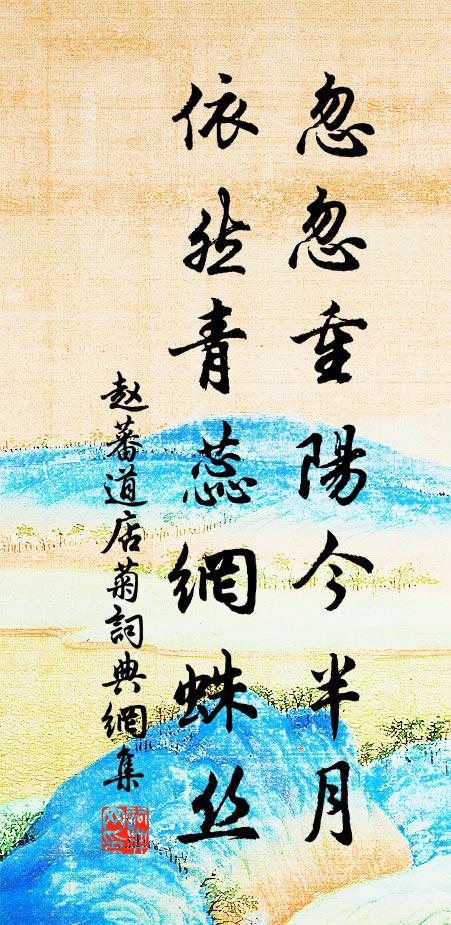 忽忽重陽今半月
依然青蕊網蛛丝
赵蕃道店菊詞典網集